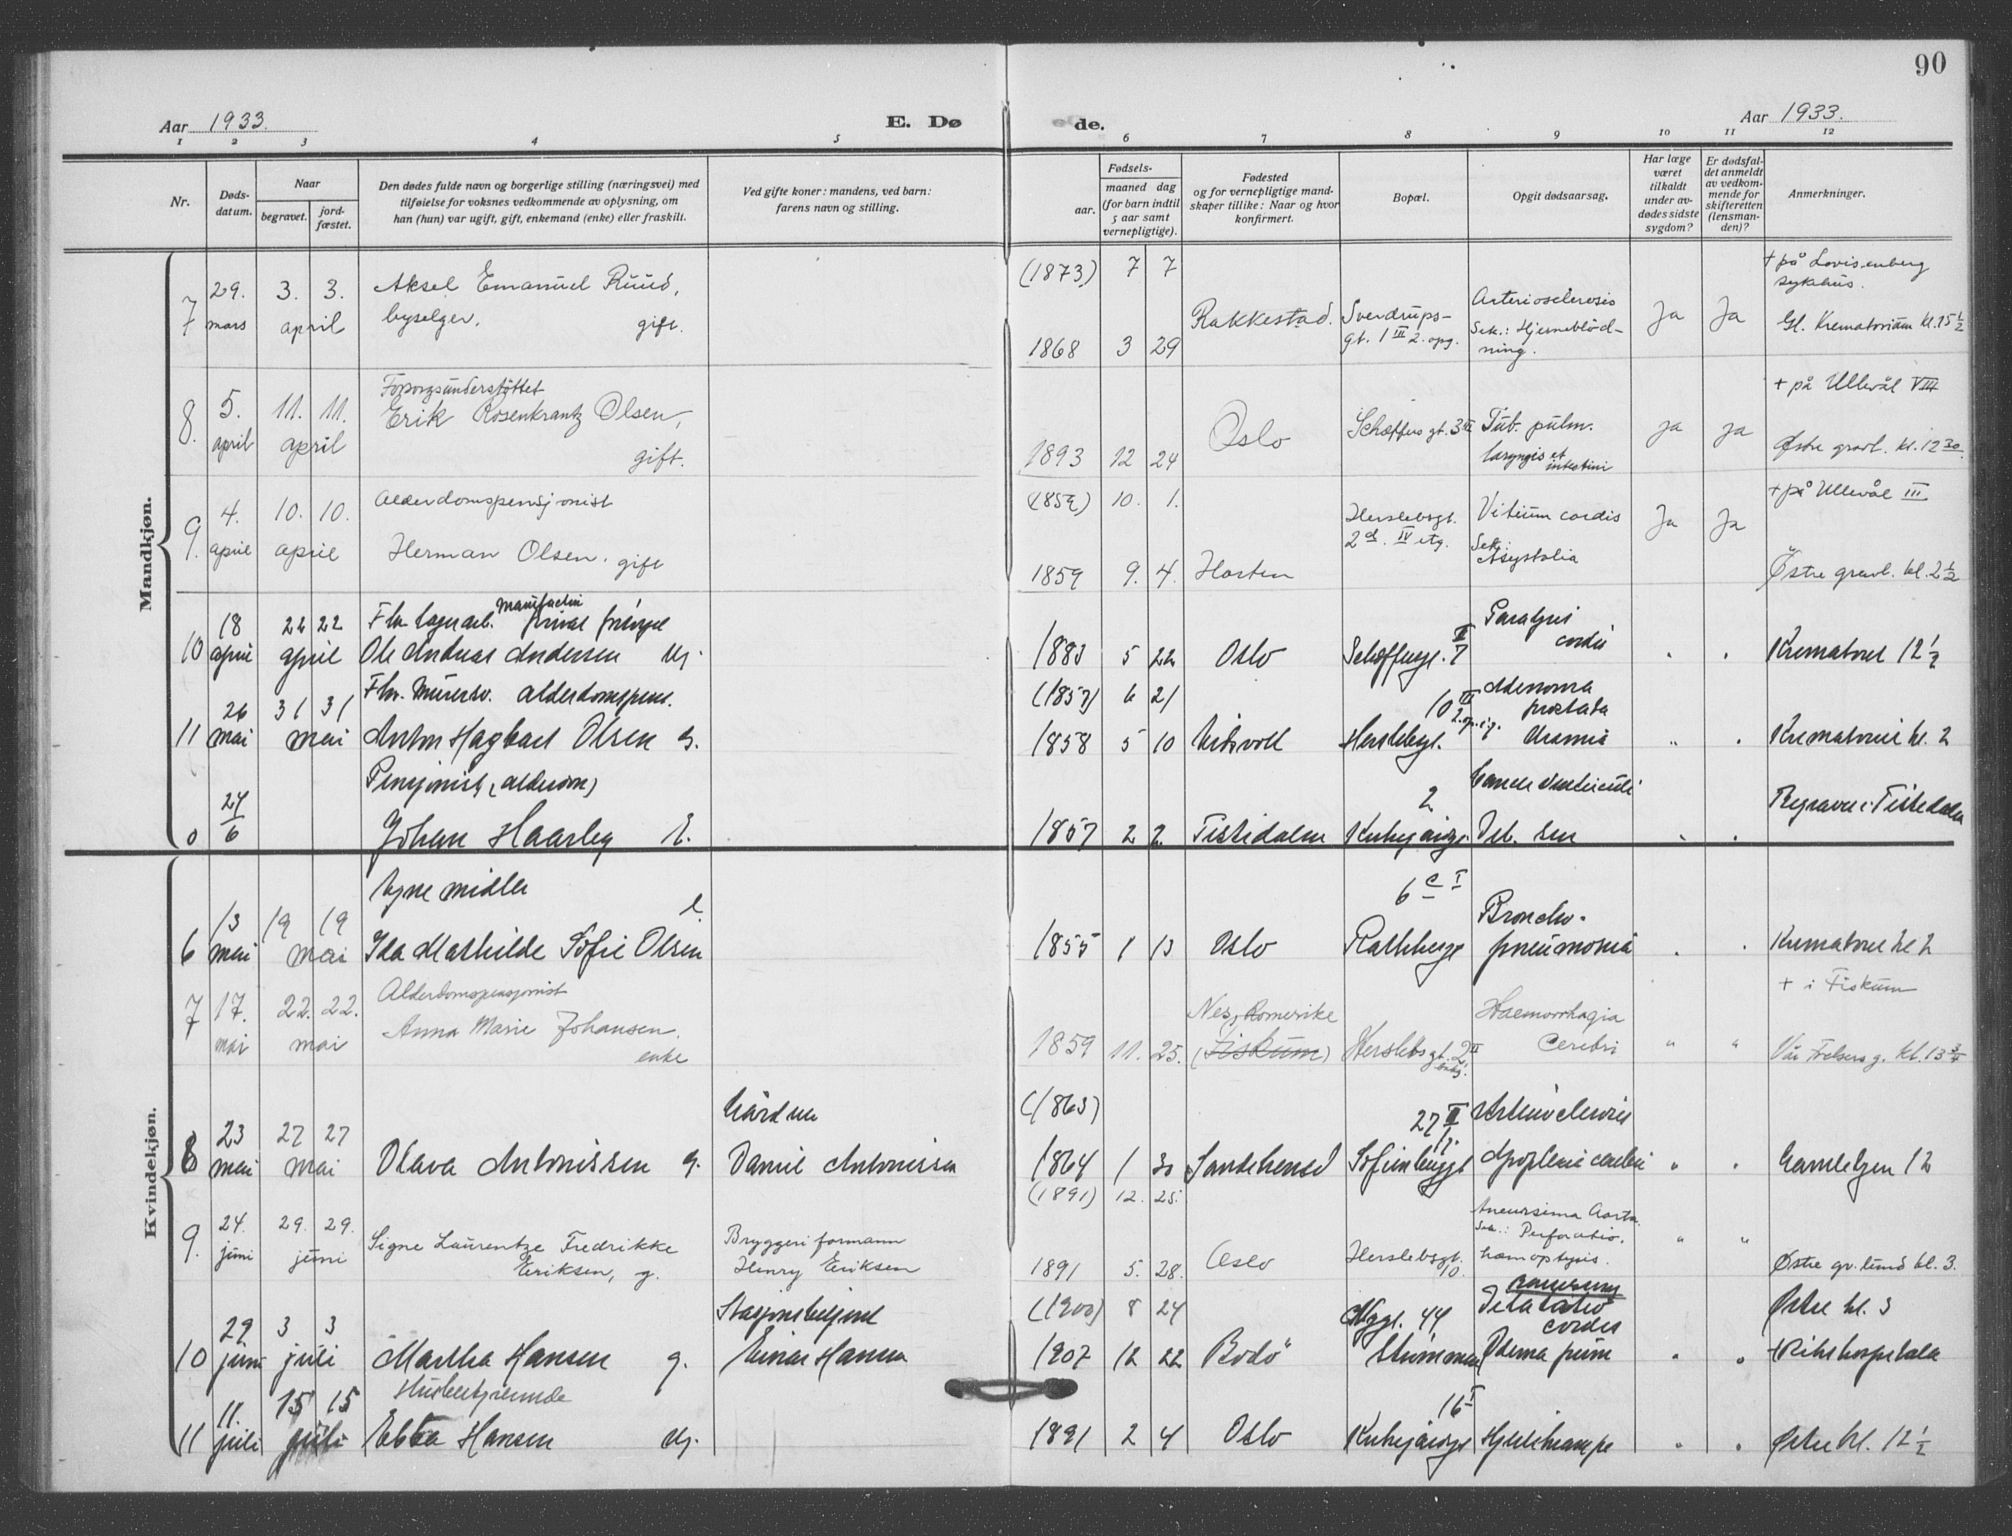 90
Aar 1933.
E. Dø
de.
Aar 1933.
1 2 3 4 5 6 7 8 9 10 11 12
Nr.
Døds-
datum.
Naar
begravet.
jord-
fæstet.
Den dødes fulde navn og borgerlige stilling (næringsvei) med
tilføielse for voksnes vedkommende av oplysning, om
han (hun) var ugift, gift, enkemand (enke) eller fraskilt.
Ved gifte koner: mandens, ved barn:
farens navn og stilling.
Fødsels-
aar.
maaned dag
(for barn indtil
5 aar samt
vernepligtige).
Fødested
og for vernepligtige mand-
skaper tillike: Naar og hvor
konfirmert.
Bopæl.
Opgit dødsaarsag.
Har læge
været
tilkaldt
under av-
dødes sidste
sygdom?
Er dødsfal-
det anmeldt
av vedkom-
mende for
skifteretten
(lensman-
den)?
Anmerkninger.
Mandkjøn.
7 29. mars 3. 3. april
Aksel Emanuel Ruud,
byselger. gift.
(1873) 7 7
1868 3 29
Rakkestad.
Sverdrups-
gt. 1 III 2. opg.
Arteriosclerosis
Sek.: Hjerneblød-
ning.
Ja Ja
+ på Lovisenberg
sykehus.
Gl. Krematorium kl. 15 1/2
8. 5. april 11. 11. april
Forsorgsunderstøttet
Erik Rosenkrantz Olsen,
gift.
1893 12 24
Oslo
Schæffers gt. 3 II
Tub. pulm.
laryngis et
intestini
ja ja
+ på Ullevål VIII
Østre gravl. kl. 12 30.
9. 4. april 10. 10. april
Alderdomspensjonist
Herman Olsen. gift
(1859) 10. 1.
1859 9. 4.
Horten
Herslebsgt.
2 d. IV etg.
Vitium cordis
Sek.:
Asystolia
Ja Ja
+ på Ullevål III
Østre gravl. kl. 2 1/2
10 18 april 22 22 april
Fhv. lagerarb.
Ole Andreas Andersen ug.
1883 5 22
Oslo
Schæffersgt. 7
Paralysis
cordis
" "
Krematoriet 12 1/2
11 26 mai 31 31 mai
Fhv. Murersv. alderdomspens.
Anton Hagbart Olsen g.
(1857) 6 21
1858 5 10
Eidsvoll
10 III
Herslebsgt.
Adenoma
prostata
Uræmia
" "
Krematoriet kl. 2
0 24/6
Pensjonist, (alderdom)
Johan Haarby E.
1857 2 2.
Tistedalen
2
Cancer ventriculi
Deb. sen
" "
Begravet i Tistedalen
Kvindekjøn.
6 13 mai 19 19 mai
Egne midler
Ida Mathilde Sofie Olsen e.
1855 1 13
Oslo
6 c I
Rathkesgt
Broncho-
pneumonia
" "
Krematoriet kl 2
7 17. mai 22. 22. mai
Alderdomspensjonist
Anna Marie Johansen.
enke
1859 11. 25.
Nes, Romerike
(Fiskum)
Herslebs gt. 2 II
Haemorrhagia
Cerebri
" "
+ i Fiskum
Vår Frelsers g. kl. 13 3/4
8 23 mai 27 27 mai
Olava Antonissen g.
Gårdm
Daniel Antonissen
(1863)
1864 1 30
Sandeherred
27 II
Sofienberggt
Arteriosclerosis
Apoplexia cerebri
" "
Gamlebyen 12
9. 24. juni 29. 29. juni
Signe Laurentze Fredrikke
Eriksen, g.
Bryggeriformann
Henry Eriksen
(1891) 12. 25.
1891 5. 28.
Oslo
Herslebsgt.
10.
Aneurisma Aorta.
Sek.: Perforatio.
hæmoptysis.
" "
Østre gr. lund kl. 3.
10 29 juni 3 3 juli
Martha Hansen g.
Stasjonsbetjent
Einar Hansen
(1900) 8 24
1907 12 22
Bodø
44
Strømmen
Dilatatio
cordis
Ødema pulm
" "
Østre kl. 3
+ Rikshospitalet
11 11. juli 15 15 juli
Husbestyrerinde
Ebba Hansen ug.
1891 2 4
Oslo
16 I
Hjertekrampe
" "
Østre kl. 12 1/2